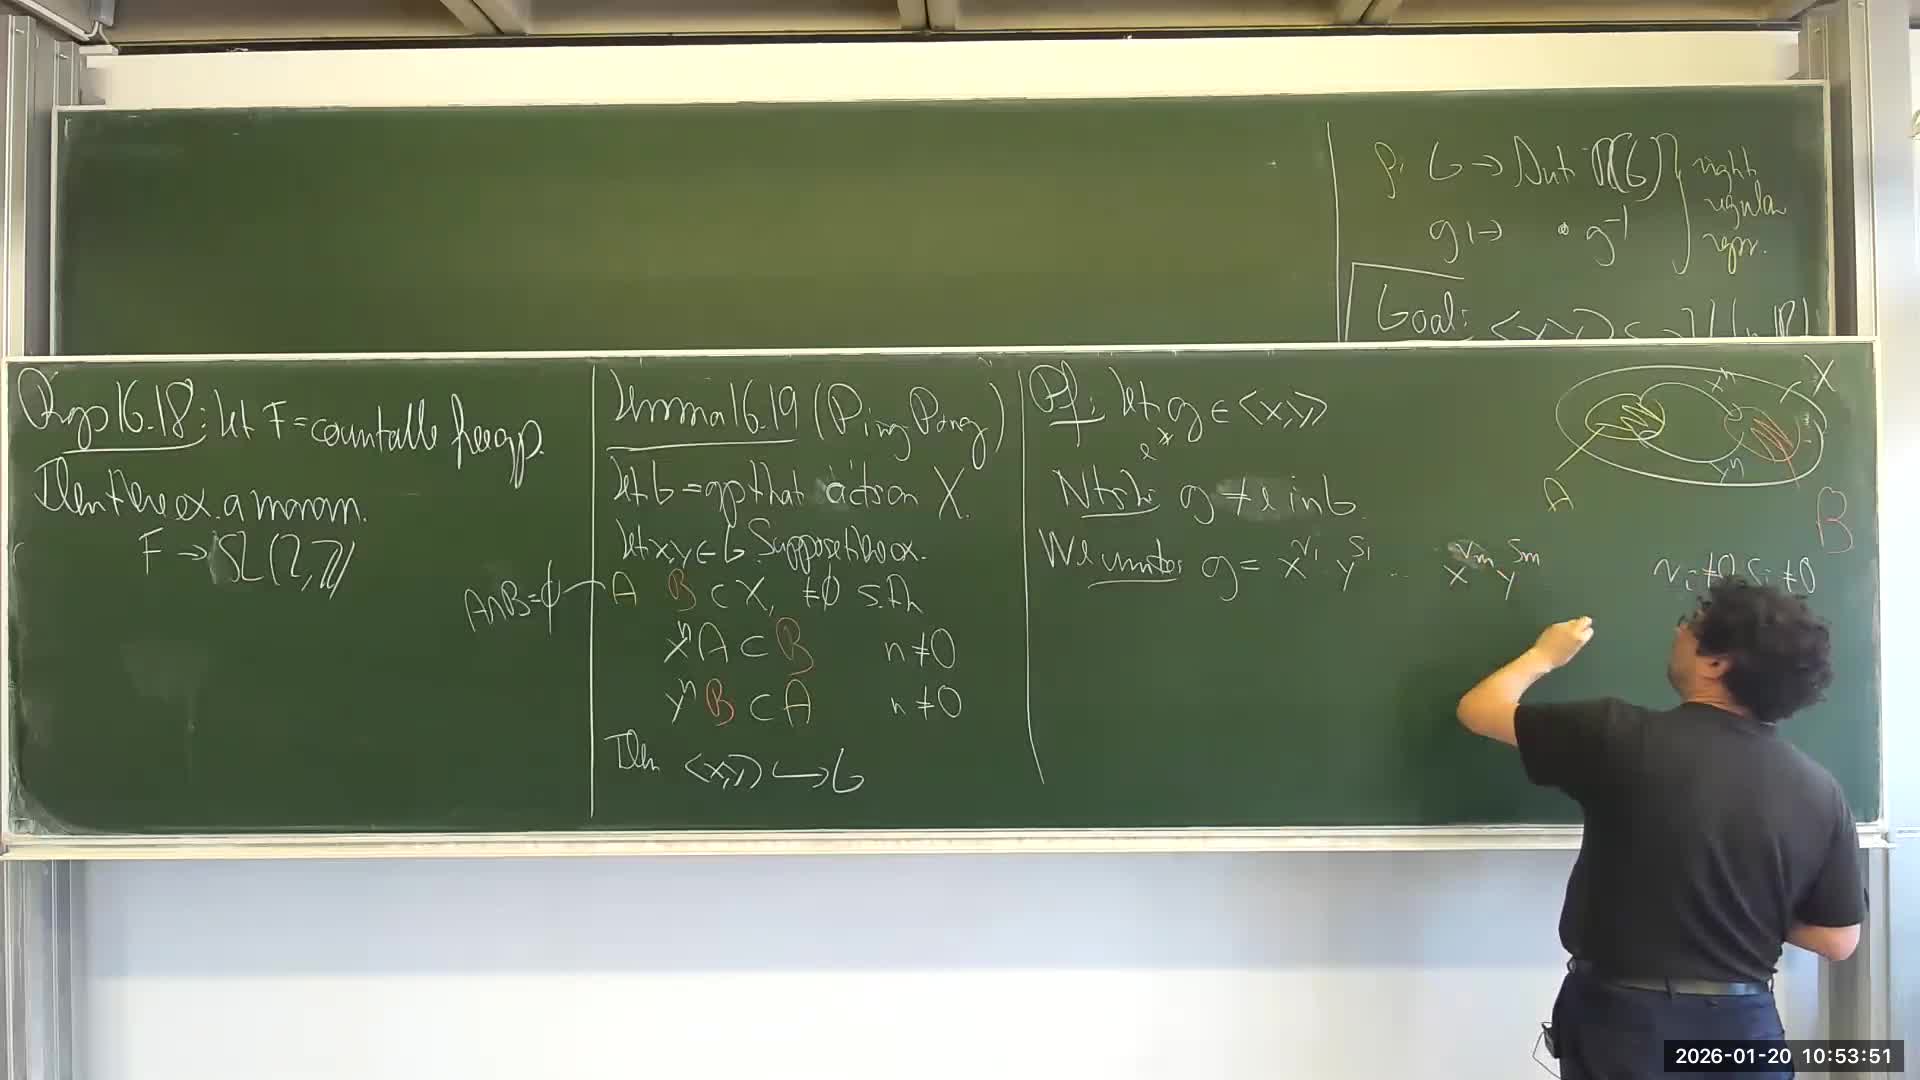 ρ: G → Aut ℝ(G)
g ↦ • g⁻¹
right
regular
repr.
Goal: <x,y>
Prop 16.18: Let F = countable free gp.
Then there ex. a monom.
F → SL(2,ℤ)
Lemma 16.19 (Ping Pong)
Let G = gp that acts on X.
Let x,y ∈ G. Suppose there ex.
A∩B=∅
A B ⊂ X, ≠∅ s.th
xⁿA ⊂ B n≠0
yⁿB ⊂ A n≠0
Then <x,y> ↪ G
Pf: Let g ∈ <x,y>
Nts: g ≠ e in G.
We write g = x^r₁ y^s₁ ... x^rₘ y^sₘ rᵢ≠0 sᵢ≠0
X
xⁿ
yⁿ
A
B
2026-01-20 10:53:51